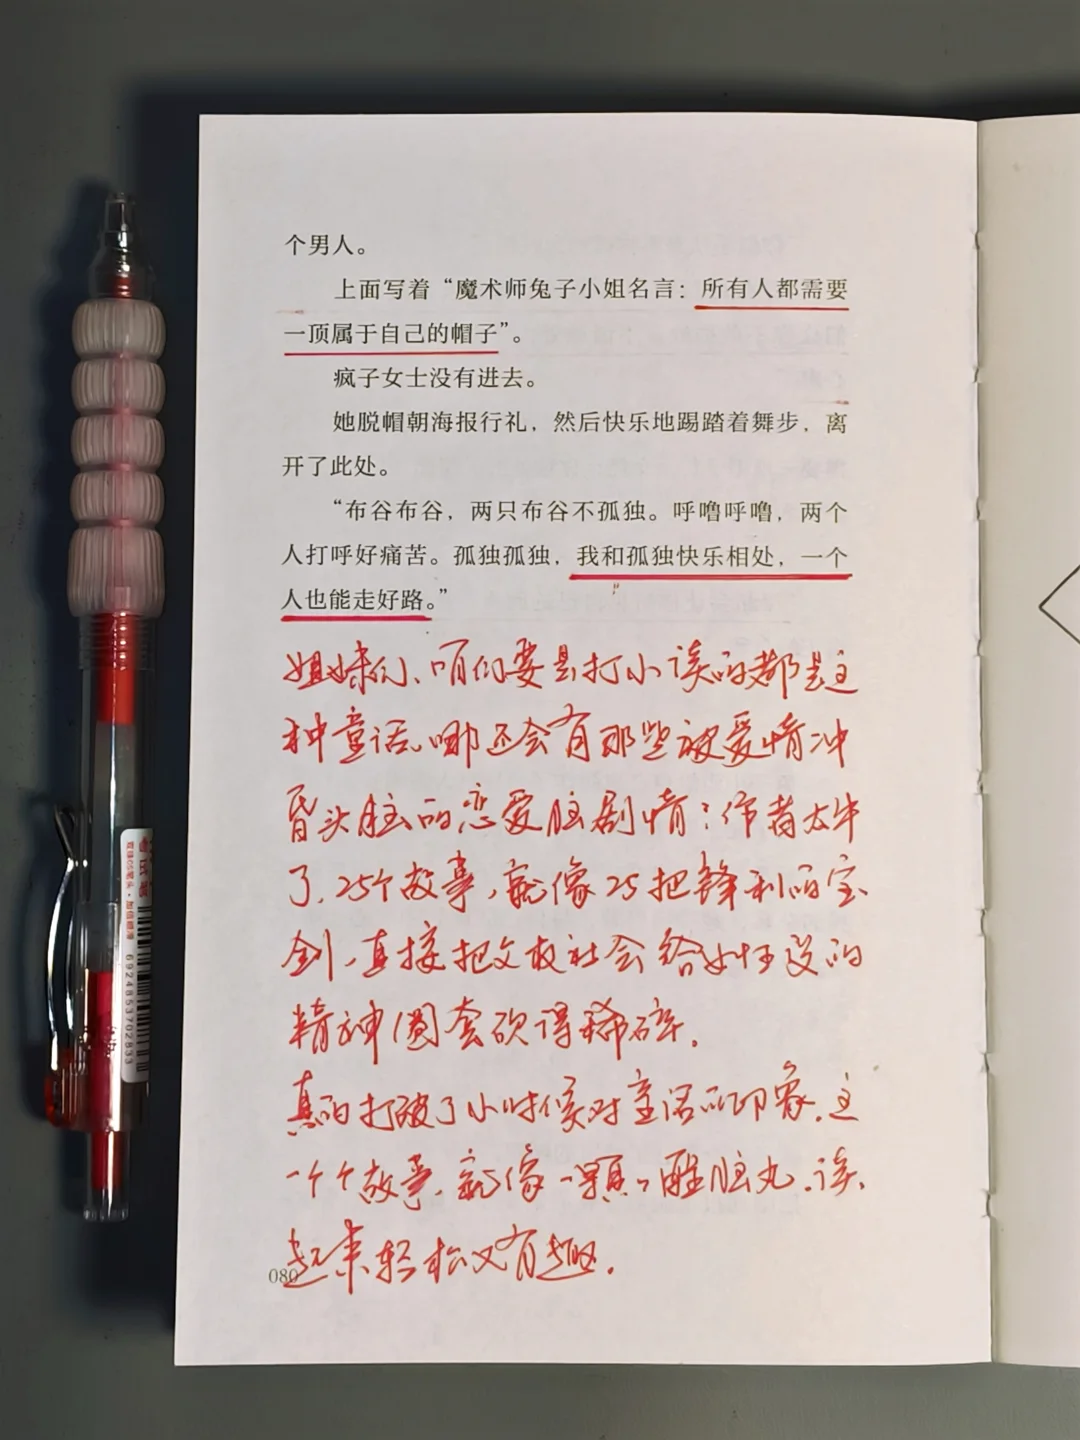 个男人。
上面写着“魔术师兔子小姐名言：所有人都需要
一顶属于自己的帽子”。
疯子女士没有进去。
她脱帽朝海报行礼，然后快乐地踢踏着舞步，离
开了此处。
“布谷布谷，两只布谷不孤独。呼噜呼噜，两个
人打呼好痛苦。孤独孤独，我和孤独快乐相处，一个
人也能走好路。”
姐妹们、咱们要是打小读的都是这
种童话，哪还会有那些被爱情冲
昏头脑的恋爱脑剧情？作者太牛
了，25个故事，就像25把锋利的宝
剑，直接把父权社会给女性设的
精神圈套砍得稀碎。
真的打破了小时候对童话的印象，这
一个个故事，就像一颗颗醒脑丸，读
起来轻松又有趣。
080
双珠05笔头·加倍顺滑
6924853702833